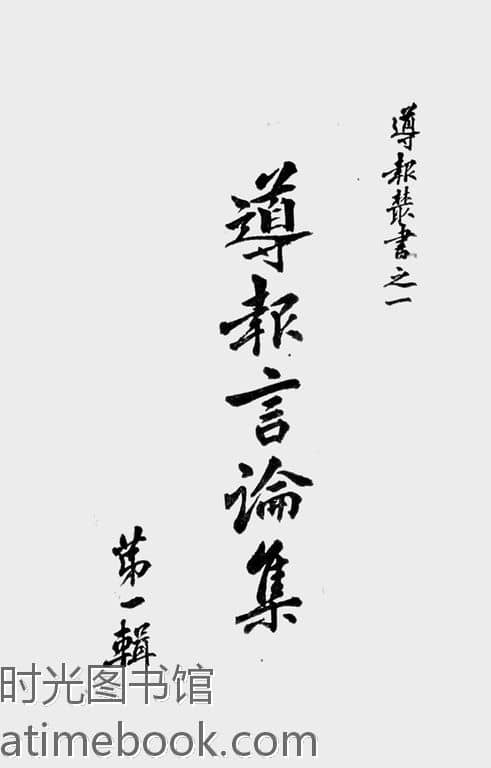 導報叢書之一
導報言論集
第一輯
时光图书馆
atimebook.com